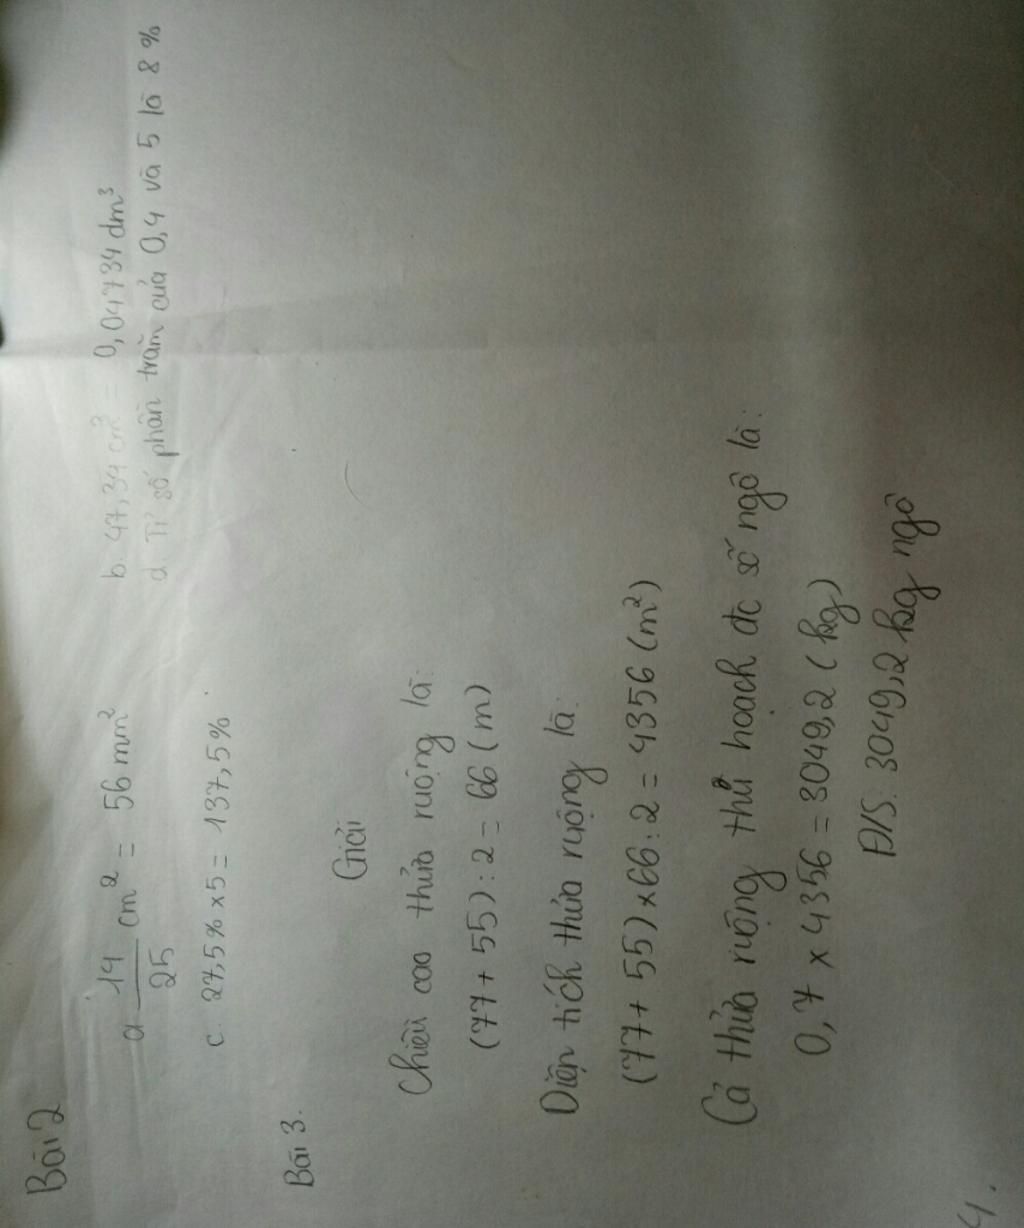 Bài 2
a 14/25 cm² = 56 mm²
b. 47,34 cm³ = 0,04734 dm³
c. 27,5% x 5 = 137,5%
d. Tỉ số phần trăm của 0,4 và 5 là 8%
Bài 3.
Giải
Chiều cao thửa ruộng là:
(77 + 55) : 2 = 66 (m)
Diện tích thửa ruộng là:
(77 + 55) x 66 : 2 = 4356 (m²)
Cả thửa ruộng thu hoạch đc số ngô là:
0,7 x 4356 = 3049,2 (kg)
Đ/S: 3049,2 kg ngô
4.